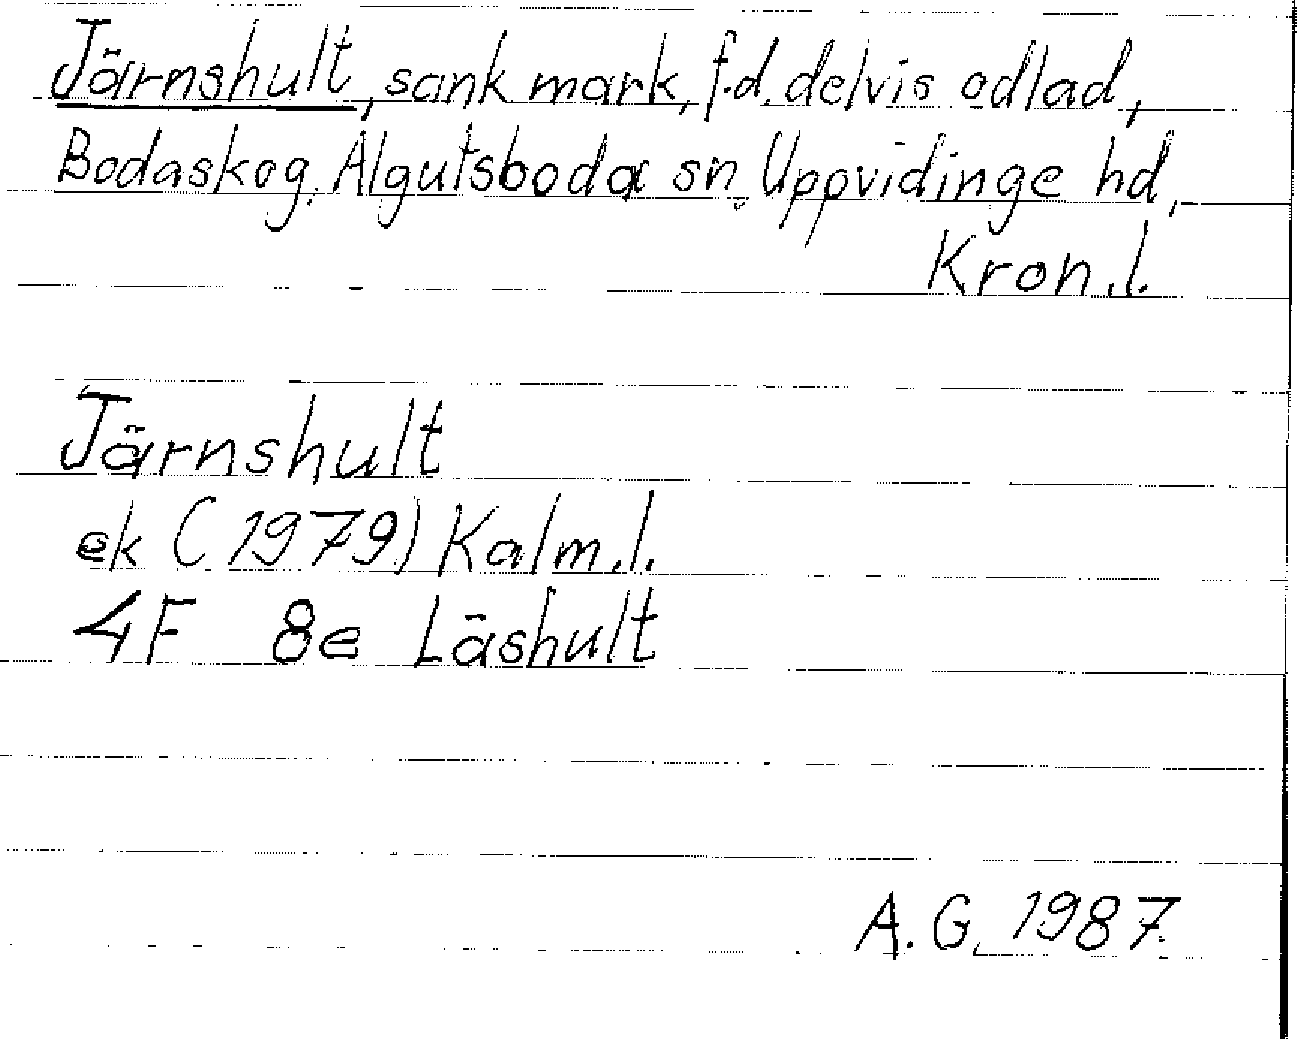 Järnshult, sank mark, f.d. delvis odlad,
Bodaskog, Algutsboda sn, Uppvidinge hd,
Kron.l.
Järnshult
ek (1979) Kalm.l.
4F 8e Läshult
A.G. 1987